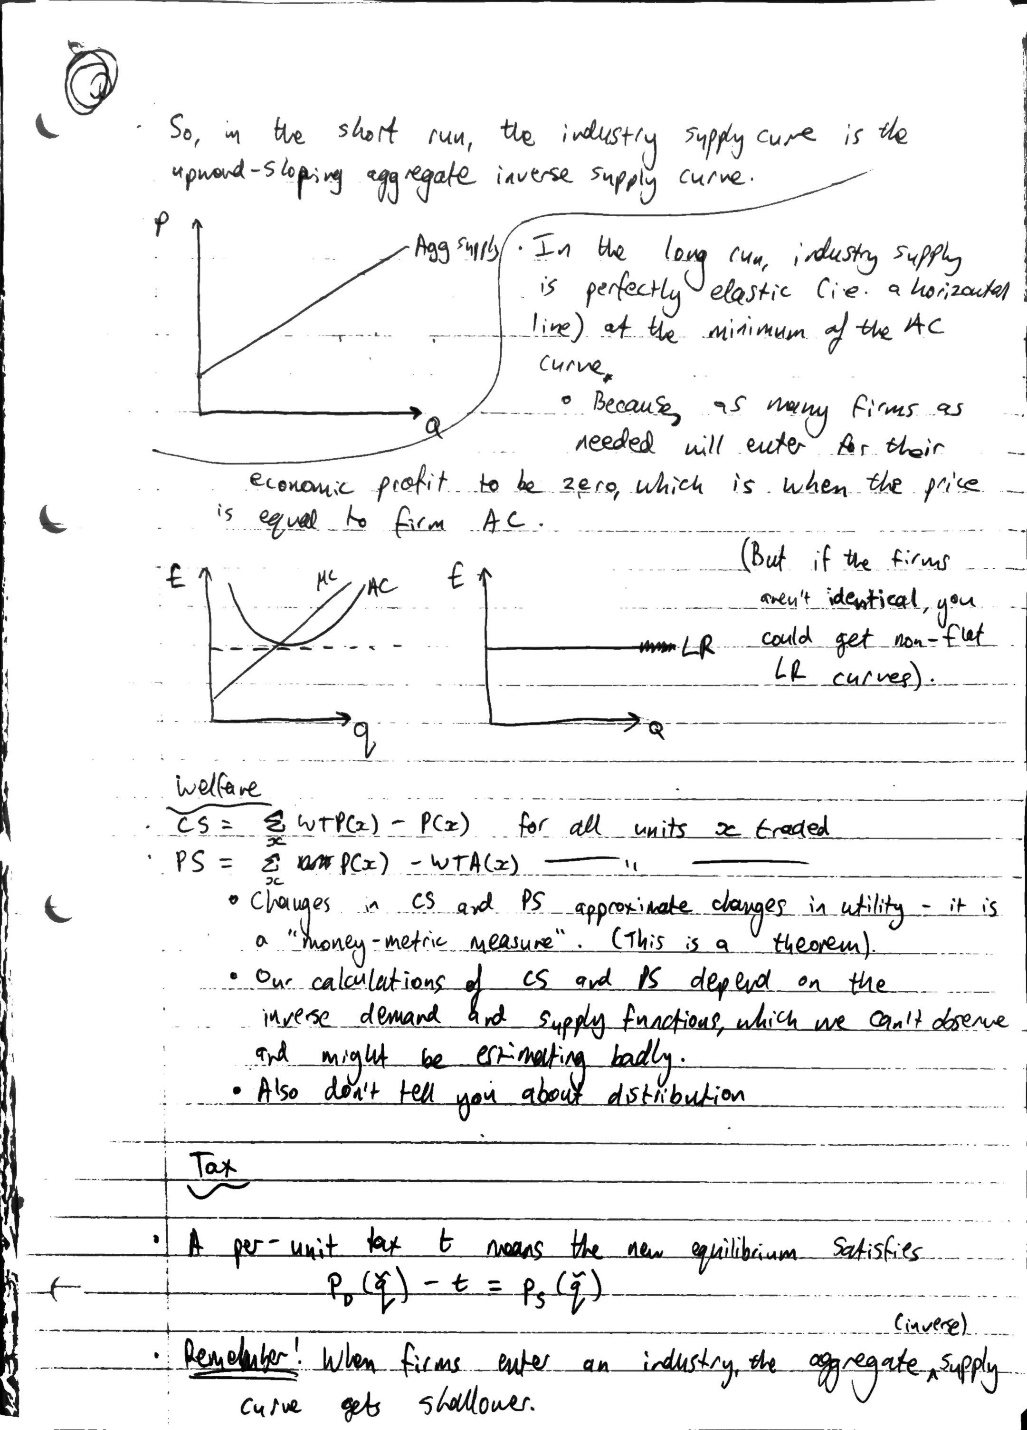 · So, in the short run, the industry supply curve is the
upward-sloping aggregate inverse supply curve.
P
Agg supply
Q
· In the long run, industry supply
is perfectly elastic (i.e. a horizontal
line) at the minimum of the AC
curve.
• Because, as many firms as
needed will enter for their
economic profit to be zero, which is when the price
is equal to firm AC.
(But if the firms
aren't identical, you
could get non-flat
LR curves).
£
MC
AC
q
£
LR
Q
Welfare
· CS = Σ WTP(x) - P(x) for all units x traded
x
· PS = Σ P(x) - WTA(x) —— " ——
x
• Changes in CS and PS approximate changes in utility - it is
a "money-metric measure". (This is a theorem).
• Our calculations of CS and PS depend on the
inverse demand and supply functions, which we can't observe
and might be estimating badly.
• Also don't tell you about distribution
Tax
· A per-unit tax t means the new equilibrium satisfies
P_D(q̃) - t = P_S(q̃)
(inverse)
· Remember! When firms enter an industry, the aggregate ^ supply
curve gets shallower.